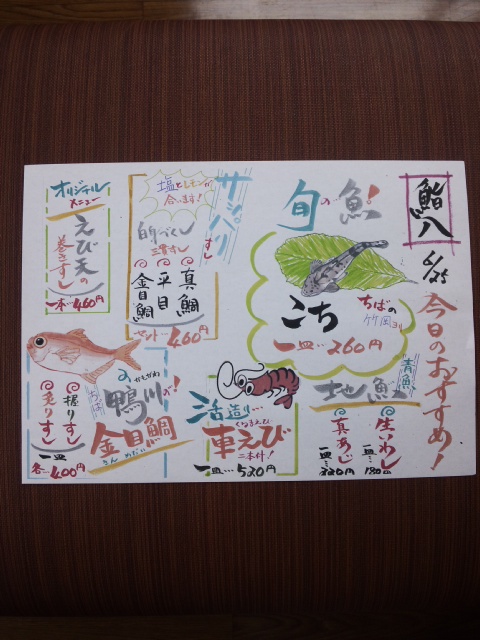 鮨八
6/25
今日のおすすめ！
旬の魚！
こち
ちばの
竹岡ヨリ
一皿…260円
青魚
地魚
生いわし
一皿…180円
真あじ
一皿…220円
サッパリすし
塩とレモンが
合います！
的づくし
三貫すし
真鯛
平目
金目鯛
セット…460円
活造り…
くるまえび
車えび
二本付！
一皿…520円
オリジナル
メニュー
えび天の
巻きすし
一本…460円
かもがわ
鴨川の！
金目鯛
きんめだい
握りすし
炙りすし
一皿
各…400円